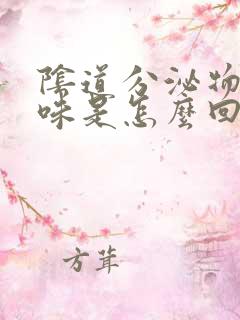 陰道分泌物
味是怎麼回
方茸